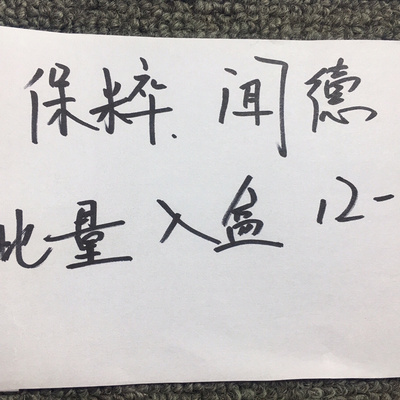 保粹.闻德
批量入盒 12-